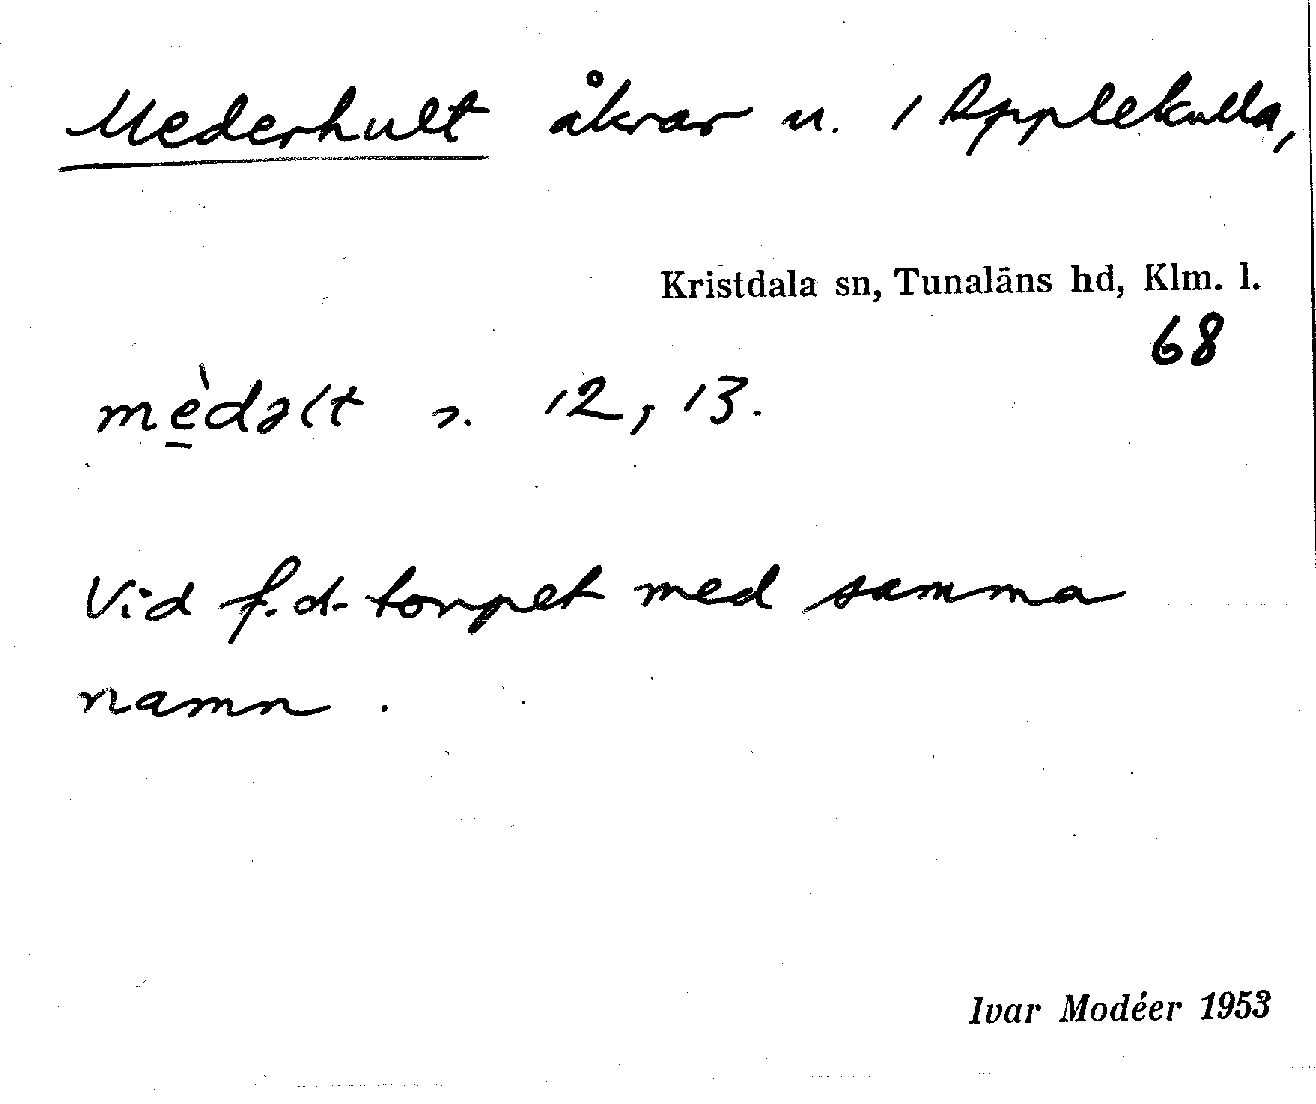 Mederhult åkrar u. 1 Applekulla,
Kristdala sn, Tunaläns hd, Klm. l.
68
mèdəlt 2. 12, 13.
Vid f.d. torpet med samma
namn.
Ivar Modéer 1953